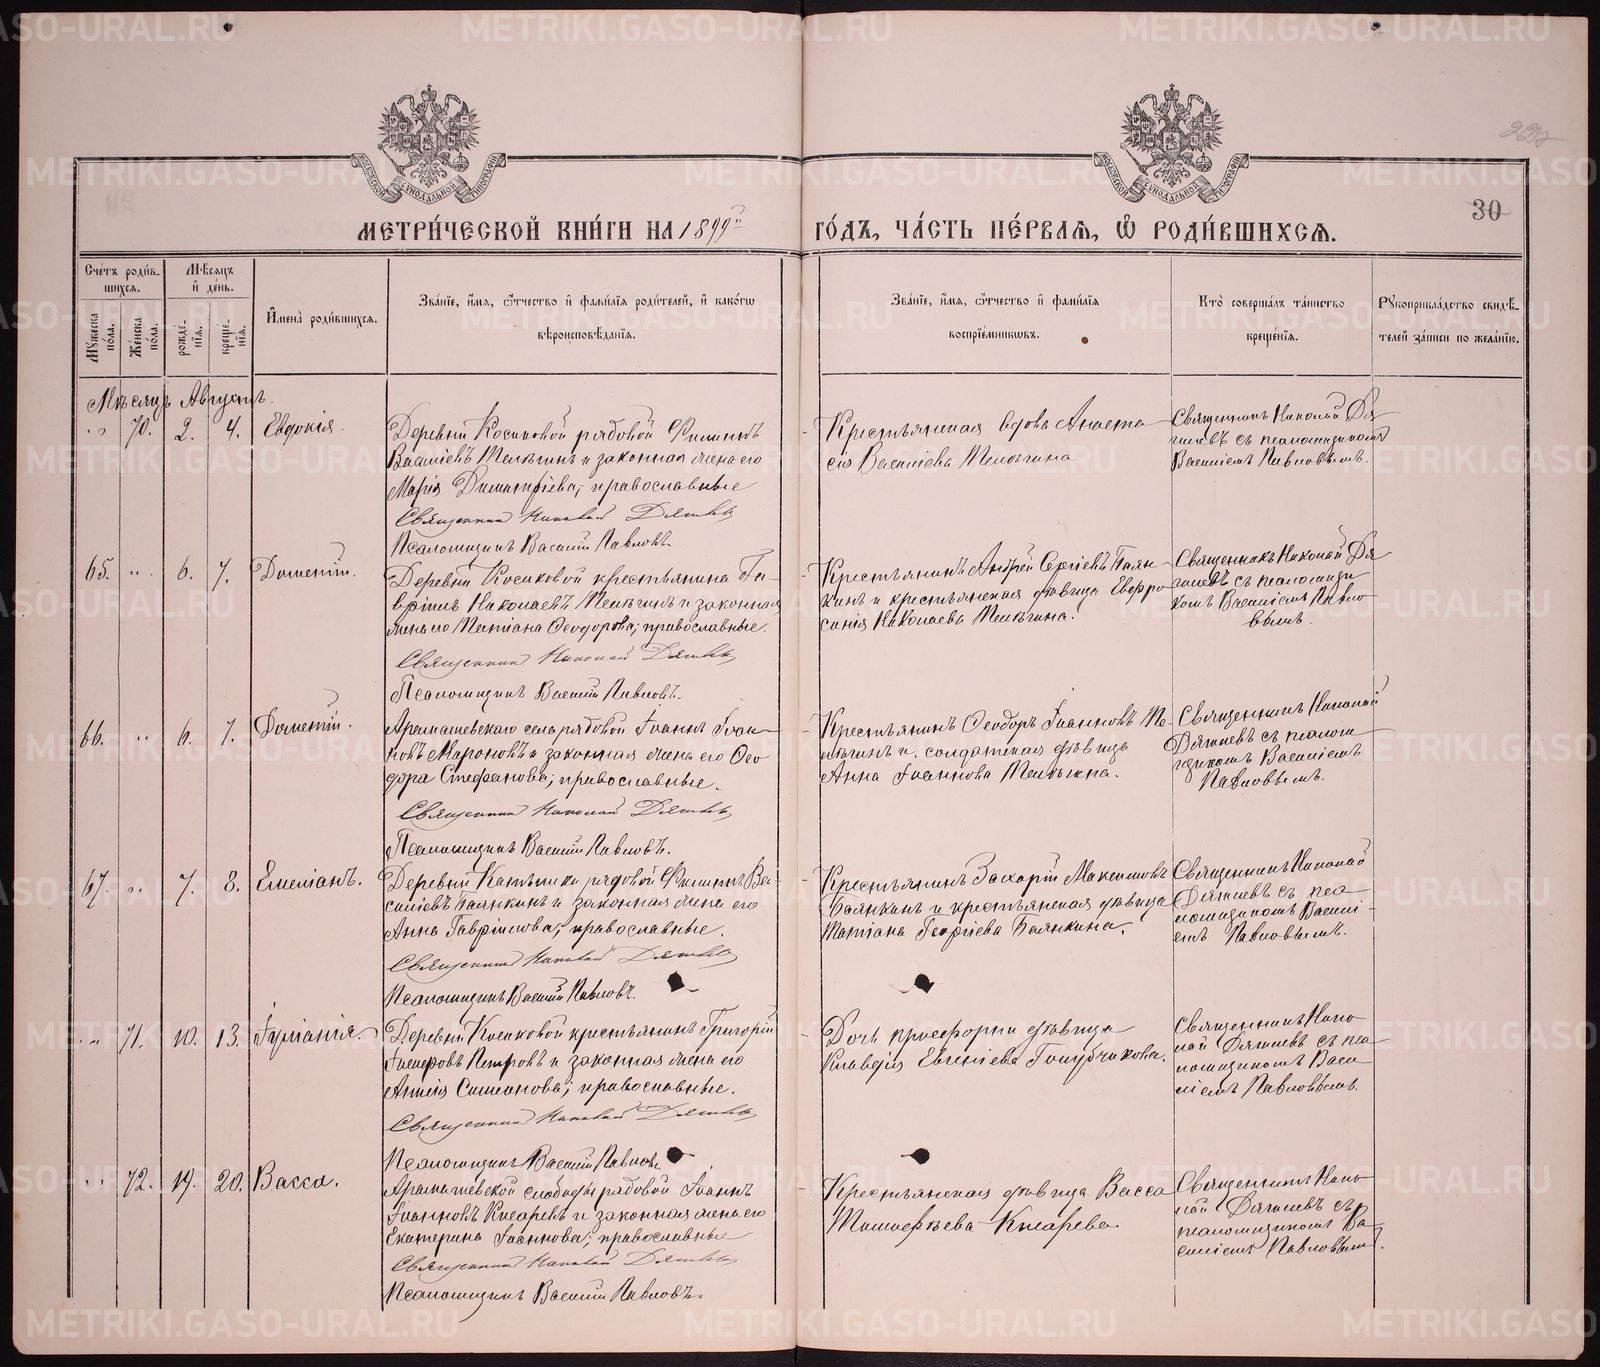 МЕТРИ́ЧЕСКОЙ КНИ́ГИ НА 1899й ГО́ДЪ, ЧА́СТЬ ПЕ́РВАЯ, Ѿ РОДИ́ВШИХСЯ.
30
Счетъ роди́вшихся.
Му́жеска по́ла.
Же́нска по́ла.
Мѣ́сяцъ и де́нь.
рожде́нія.
креще́нія.
Имена̀ роди́вшихся.
Зва́ніе, и́мя, о́тчество и фами́лія роди́телей, и како́гѡ
вѣроисповѣ́данія.
Зва́ніе, и́мя, о́тчество и фами́лія
воспріе́мникѡвъ.
Кто̀ соверша́лъ та́инство
креще́нія.
Рукоприкла́дство свидѣ́-
телей за́писи по жела́нію.
Мѣсяцъ Августъ.
„ 70. 2. 4. Евдокія.
Деревни Косиковой рядовой Филиппъ
Василіевъ и законная жена его
Марія Димитріева, православные
Священникъ Николай
Псаломщикъ Василій Павловъ.
Крестьянская вдова Анаста-
сія Василіева
Священникъ Николай
съ псаломщикомъ
Василіемъ Павловымъ.
65. „ 6. 7. Дометій.
Деревни Косиковой крестьянинъ Га-
вріилъ Николаевъ и законная
жена его Татіана Ѳеодорова; православные.
Священникъ Николай
Псаломщикъ Василій Павловъ.
Крестьянинъ Андрей Сергіевъ Баян-
кинъ и крестьянская дѣвица Евфро-
синія Николаева
Священникъ Николай
съ псаломщи-
комъ Василіемъ Павло-
вымъ.
66. „ 6. 7. Дометій.
Арамашевскаго села рядовой Іоаннъ Іоан-
новъ Мироновъ и законная жена его Ѳео-
дора Стефанова; православные.
Священникъ Николай
Псаломщикъ Василій Павловъ.
Крестьянинъ Ѳеодоръ Іоанновъ
и солдатская дѣвица
Анна Іоаннова
Священникъ Николай
съ псалом-
щикомъ Василіемъ
Павловымъ.
67. „ 7. 8. Емеліанъ.
Деревни рядовой Филиппъ Ва-
силіевъ Баянкинъ и законная жена его
Анна Гавріилова; православные.
Священникъ Николай
Псаломщикъ Василій Павловъ.
Крестьянинъ Захарій Максимовъ
Баянкинъ и крестьянская дѣвица
Татіана Георгіева Баянкина.
Священникъ Николай
съ пса-
ломщикомъ Василі-
емъ Павловымъ.
„ 71. 10. 13. Іуліанія.
Деревни Косиковой крестьянинъ Григорій
Іосифовъ Петровъ и законная жена его
Симеонова; православные.
Священникъ Николай
Псаломщикъ Василій Павловъ
Дочь просфорни дѣвица
Клавдія Евгеніева Голубчикова.
Священникъ Нико-
лай съ пса-
ломщикомъ Васи-
ліемъ Павловымъ.
„ 72. 19. 20. Васса.
Арамашевской слободы рядовой Іоаннъ
Іоанновъ Кисаревъ и законная жена его
Екатерина Іоаннова; православные
Священникъ Николай
Псаломщикъ Василій Павловъ.
Крестьянская дѣвица Васса
Тимофеева Кисарева.
Священникъ Нико-
лай съ
псаломщикомъ Ва-
силіемъ Павловымъ.
METRIKI.GASO-URAL.RU